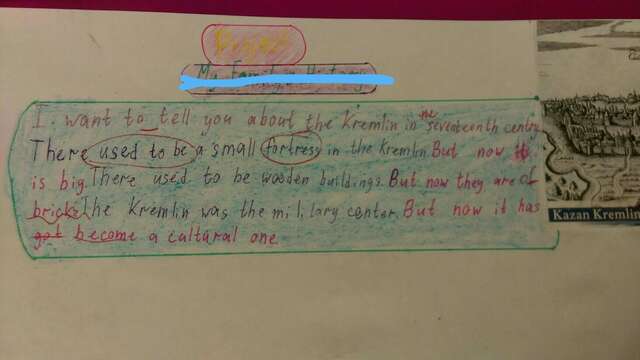 Project
My Family's History
I want to tell you about the Kremlin in the seventeenth centry.
There used to be a small fortress in the Kremlin. But now it
is big. There used to be wooden buildings. But now they are of
bricks. The Kremlin was the military center. But now it has
got become a cultural one
Kazan Kremlin